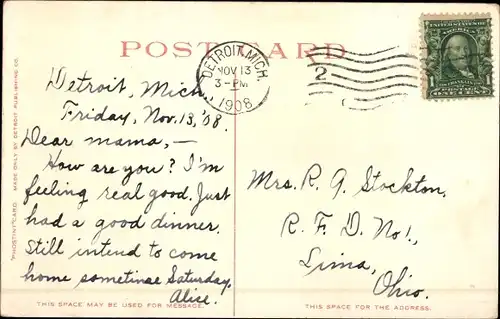 POST CARD
DETROIT, MICH.
NOV 13
3-PM
1908
2
UNITED STATES OF
AMERICA
FRANKLIN
POSTAGE
ONE CENT
"PHOSTINT" CARD. MADE ONLY BY DETROIT PUBLISHING CO.
Detroit, Mich.
Friday, Nov. 13, '08.
Dear mama,—
How are you? I'm
feeling real good. Just
had a good dinner.
Still intend to come
home sometinae Saturday.
Alice.
THIS SPACE MAY BE USED FOR MESSAGE.
Mrs. R. A. Stockton,
R. F. D. No 1.,
Lima,
Ohio.
THIS SPACE IS FOR THE ADDRESS.